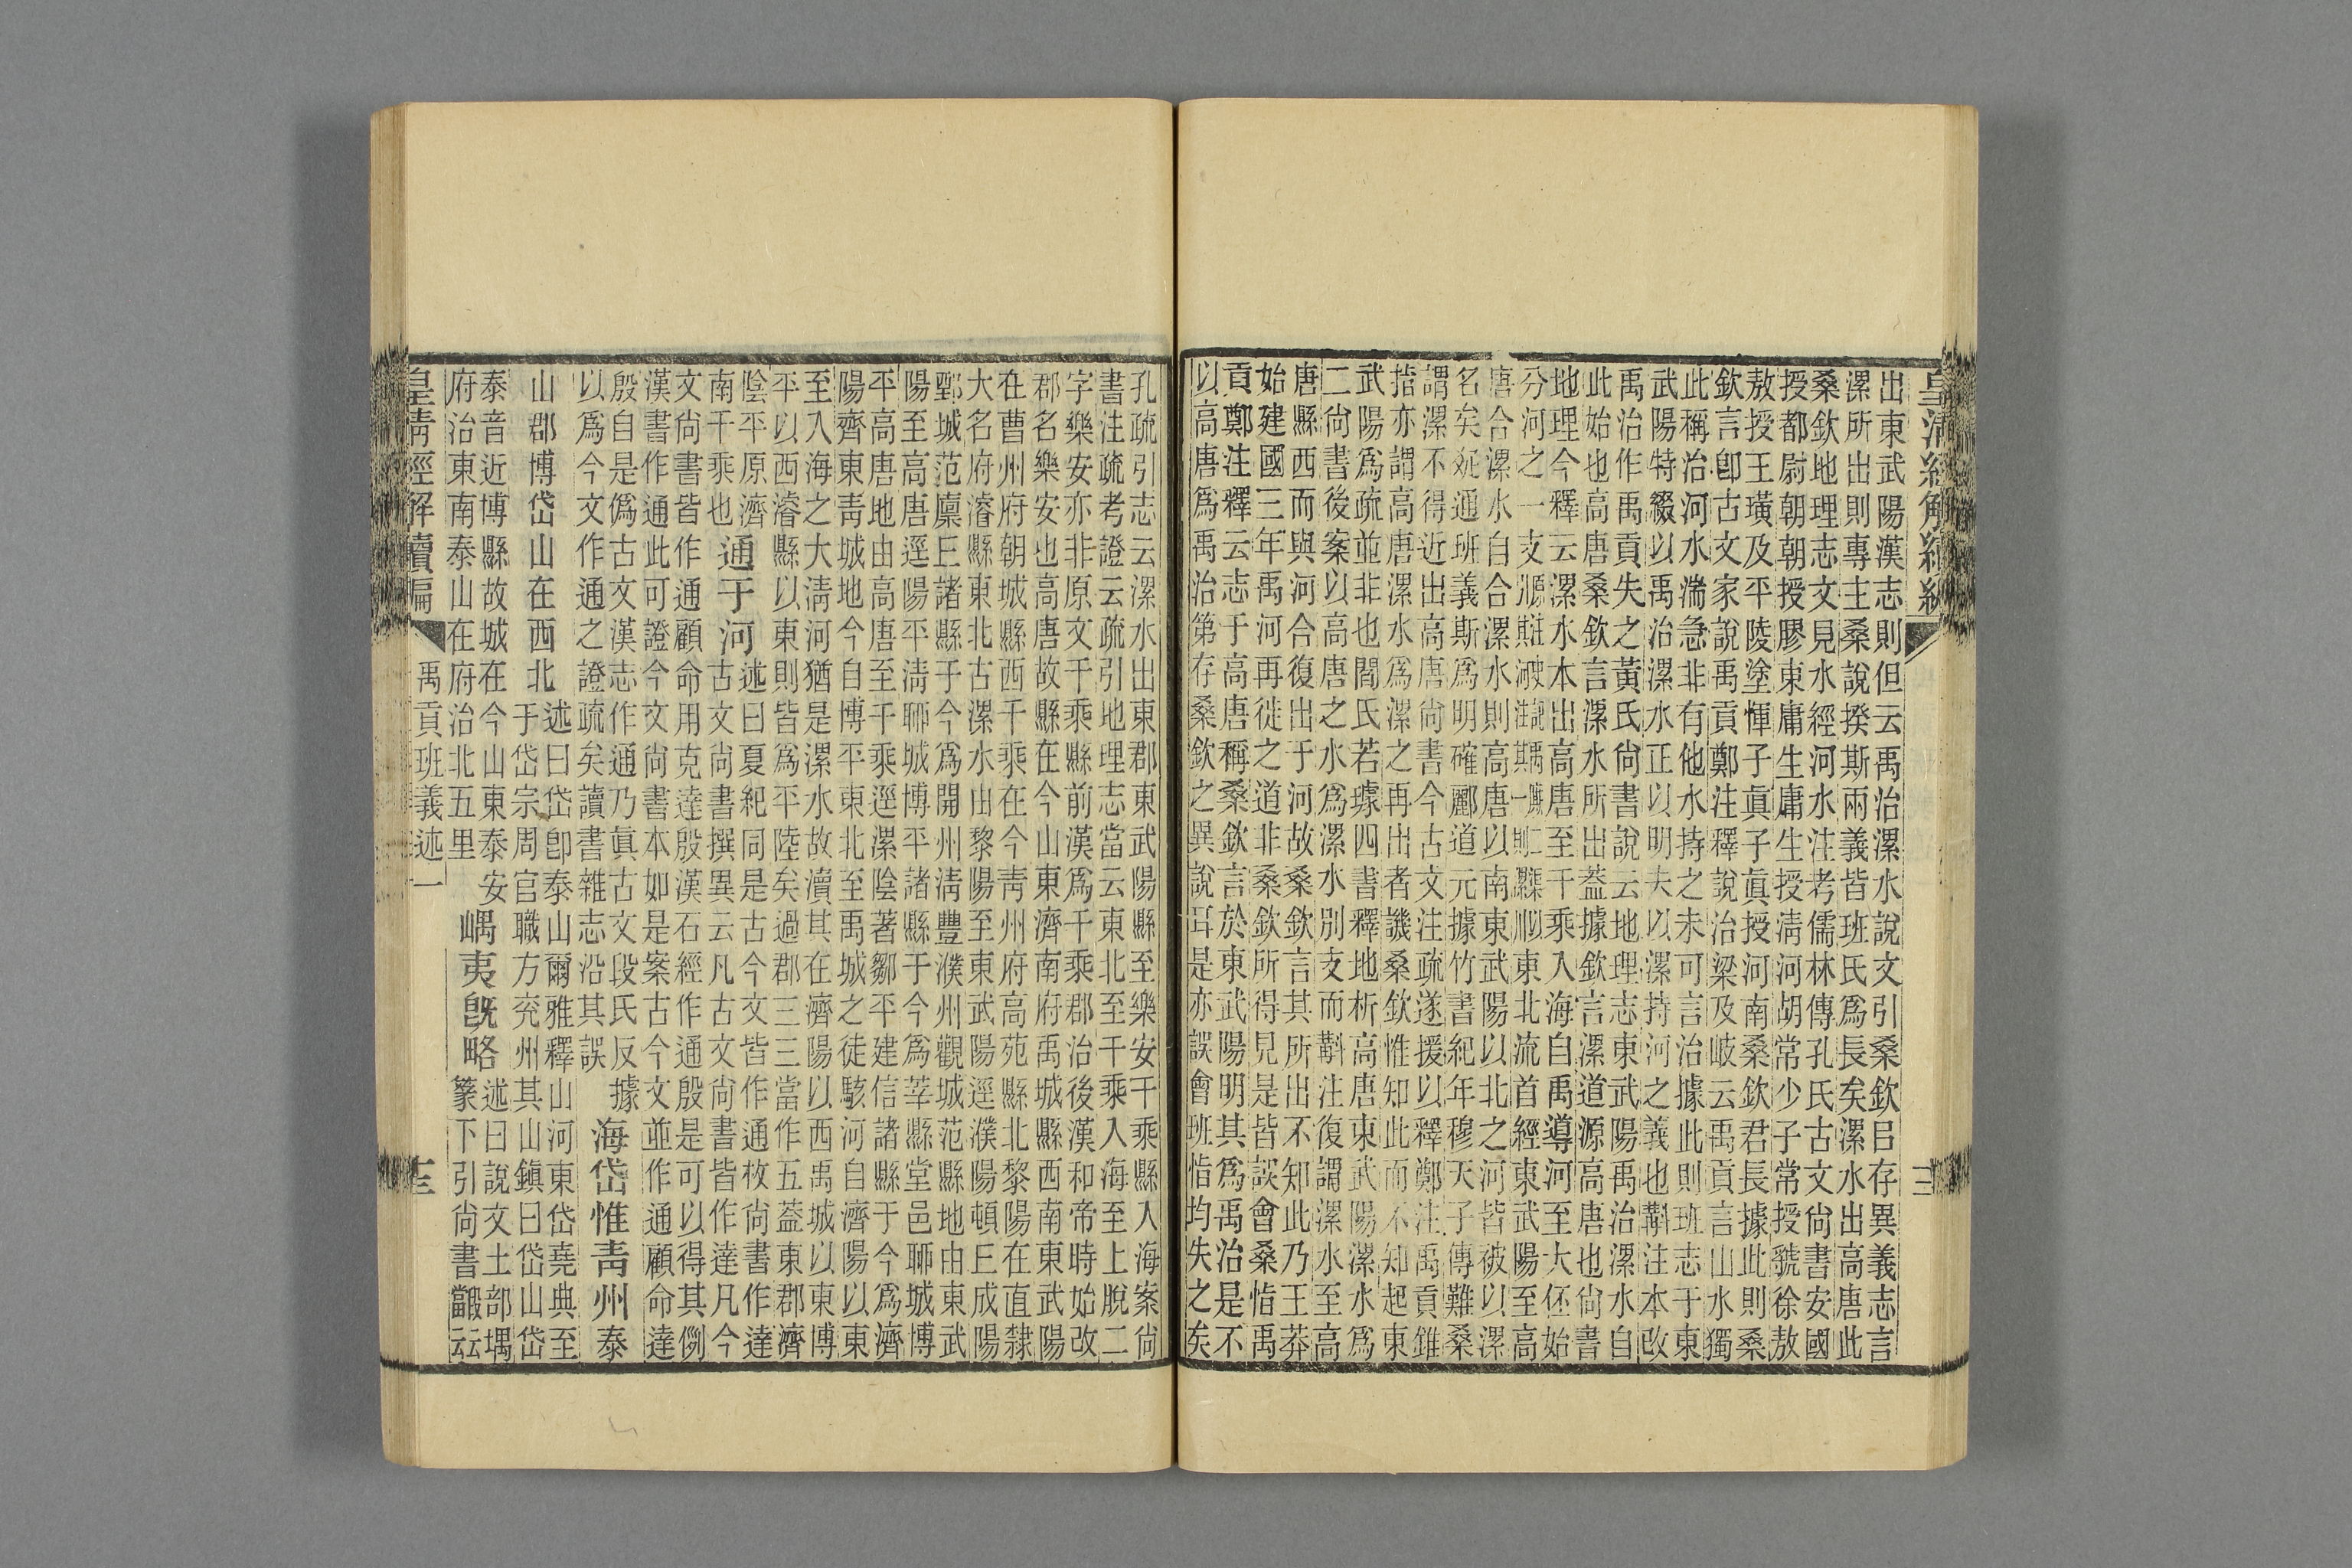 皇清經解續編
出東武陽漢志則但云禹治漯水說文引桑欽㠯存異義志言
漯所出則專主桑說揆斯兩義皆班氏爲長矣漯水出高唐此
桑欽地理志文見水經河水注考儒林傳孔氏古文尙書安國
授都尉朝朝授膠東庸生庸生授淸河胡常少子常授虢徐敖
敖授王璜及平陵塗惲子眞子眞授河南桑欽君長據此則桑
欽言卽古文家說禹貢鄭注釋說治梁及岐云禹貢言山水獨
此稱治河水湍急非有他水持之未可言治據此則班志于東
武陽特綴以禹治漯水正以明夫以漯持河之義也斠注本改
禹治作禹貢失之黃氏尙書說云地理志東武陽禹治漯水自
此始也高唐桑欽言漯水所出葢據欽言漯道源高唐也尙書
地理今釋云漯水本出高唐至千乘入海自禹導河至大伾始
分河之一支東北流首經東武陽至高
唐合漯水自合漯水則高唐以南東武陽以北之河皆被以漯
名矣㢟通班義斯爲明確酈道元據竹書紀年穆天子傳難桑
謂漯不得近出高唐尙書今古文注疏遂援以釋鄭注禹貢錐
指亦謂高唐漯水爲漯之再出者譏桑欽惟知此而不知起東
武陽爲疏並非也閻氏若璩四書釋地析高唐東武陽漯水爲
二尙書後案以高唐之水爲漯水別支而斠注復謂漯水至高
唐縣西而與河合復出于河故桑欽言其所出不知此乃王莽
始建國三年禹河再徙之道非桑欽所得見是皆誤會桑恉禹
貢鄭注釋云志于高唐稱桑欽言於東武陽明其爲禹治是不
以高唐爲禹治第存桑欽之異說耳是亦誤會班恉均失之矣
孔疏引志云漯水出東郡東武陽縣至樂安千乘縣入海案尙
書注疏考證云疏引地理志當云東北至千乘入海至上脫二
字樂安亦非原文千乘縣前漢爲千乘郡治後漢和帝時始改
郡名樂安也高唐故縣在今山東濟南府禹城縣西南東武陽
在曹州府朝城縣西千乘在今靑州府高苑縣北黎陽在直隸
大名府濬縣東北古漯水出黎陽至東武陽逕濮陽頓丘成陽
鄄城范廩丘諸縣于今爲開州淸豐濮州觀城范縣地由東武
陽至高唐逕陽平淸聊城博平諸縣于今爲莘縣堂邑聊城博
平高唐地由高唐至千乘逕漯陰著鄒平建信諸縣于今爲濟
陽齊東靑城地今自博平東北至禹城之徒駭河自濟陽以東
至入海之大淸河猶是漯水故瀆其在濟陽以西禹城以東博
平以西濬縣以東則皆爲平陸矣過郡三三當作五葢東郡濟
陰平原濟
南千乘也
通于河
述曰夏紀同是古今文皆作通枚尙書作達
古文尙書撰異云凡古文尙書皆作達凡今
文尙書皆作通顧命用克達殷漢石經作通殷是可以得其例
漢書作通此可證今文尙書本如是案古今文並作通顧命達
殷自是僞古文漢志作通乃眞古文段氏反據
以爲今文作通之證疏矣讀書雜志沿其誤
海岱惟靑州泰
山郡博岱山在西北
述曰岱卽泰山爾雅釋山河東岱堯典至
于岱宗周官職方兗州其山鎭曰岱山岱
泰音近博縣故城在今山東泰安
府治東南泰山在府治北五里
嵎夷旣略
述曰說文土部堣
篆下引尙書云
皇淸經解續編 禹貢班義述一 十三